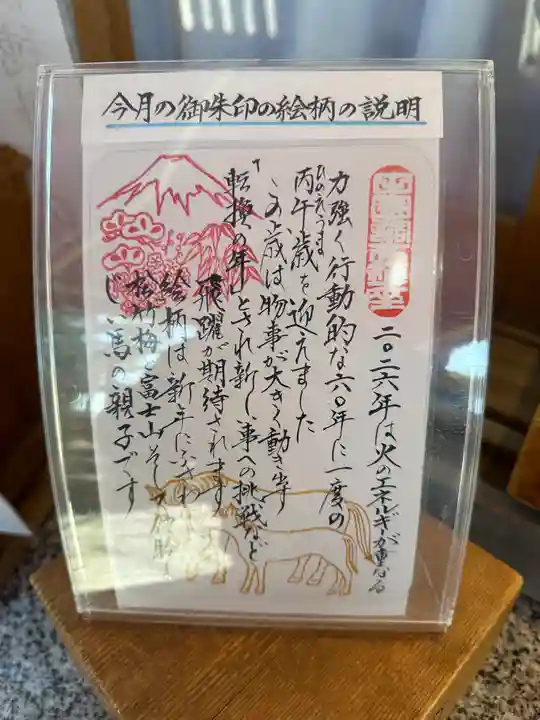 今月の御朱印の絵柄の説明
二〇二六年は火のエネルギーが重なる
力強く行動的な六〇年に一度の
ひのえうま
丙午歳を迎えました
この歳は物事が大きく動き出す
「転換の年」とされ新しい事への挑戦など
飛躍が期待されます
絵柄は新年にふさわ
松竹梅と富士山そして仲睦
じい馬の親子です